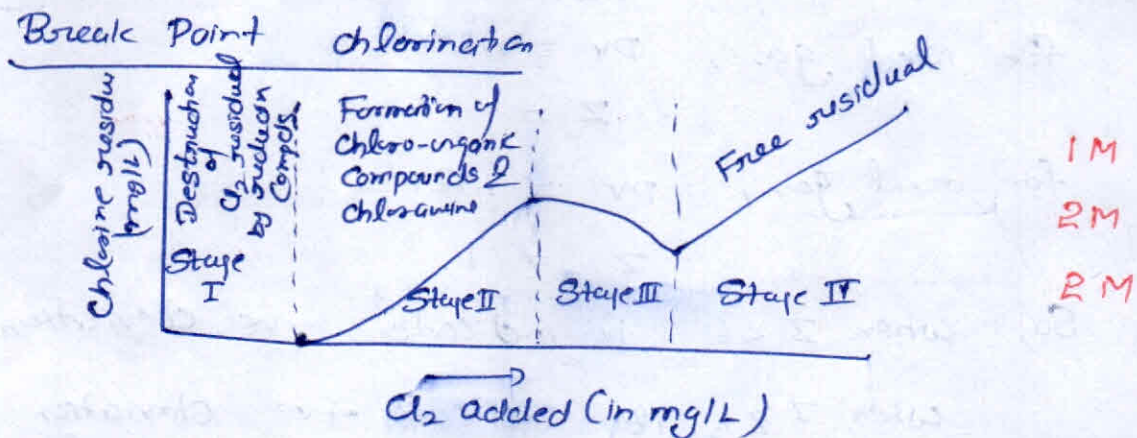 Break Point chlorination
Chlorine residu
(mg/L)
Destruction
of
Cl2 residual
by reducin
Compds.
Stage
I
Formation of
Chloro-organic
Compounds &
Chloramine
Free residual
Stage II
Stage III
Stage IV
Cl2 added (in mg/L)
1 M
2 M
2 M